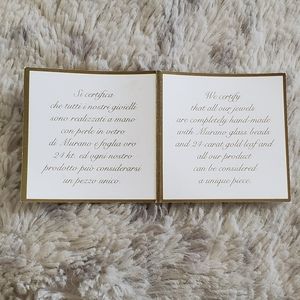 Si certifica
che tutti i nostri gioielli
sono realizzati a mano
con perle in vetro
di Murano e foglia oro
24 kt. ed ogni nostro
prodotto può considerarsi
un pezzo unico.
We certify
that all our jewels
are completely hand-made
with Murano glass beads
and 24 carat gold leaf and
all our product
can be considered
a unique piece.